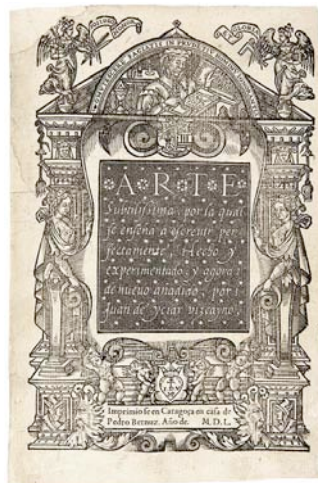 A R T E
Subtilissima, por la qual
se enseña a escreuir per
fectamente, Hecho y
experimentado, y agora
de nueuo añadido, por
Juan de Yciar vizcayno,
Imprimiose en Caragoça en casa de
Pedro Bernuz. Año de. M. D. L.